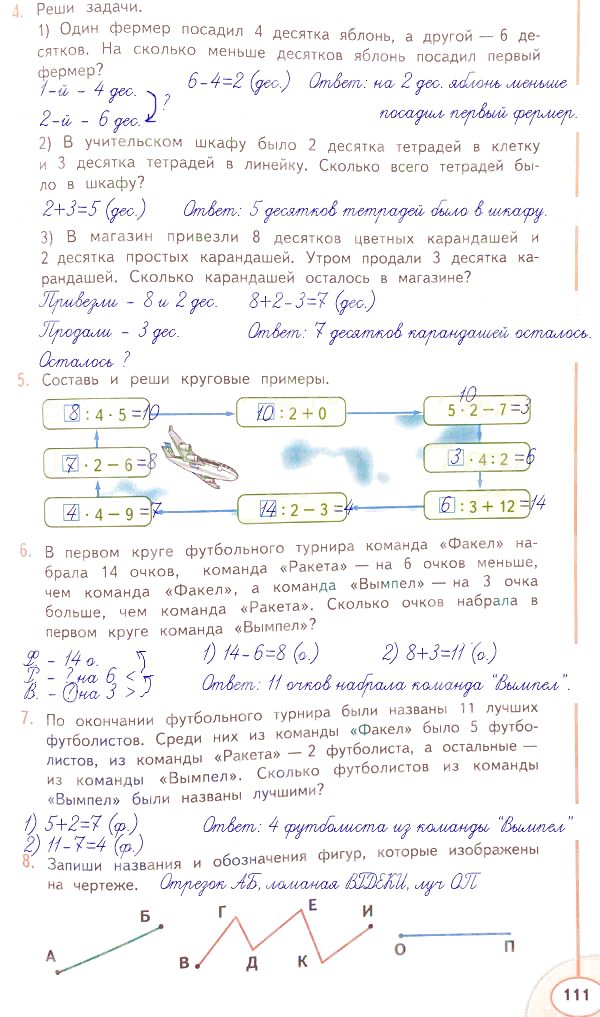 4. Реши задачи.
1) Один фермер посадил 4 десятка яблонь, а другой — 6 де-
сятков. На сколько меньше десятков яблонь посадил первый
фермер?
1-й - 4 дес. ?
6-4=2 (дес.) Ответ: на 2 дес. яблонь меньше
2-й - 6 дес.
посадил первый фермер.
2) В учительском шкафу было 2 десятка тетрадей в клетку
и 3 десятка тетрадей в линейку. Сколько всего тетрадей бы-
ло в шкафу?
2+3=5 (дес.) Ответ: 5 десятков тетрадей было в шкафу.
3) В магазин привезли 8 десятков цветных карандашей и
2 десятка простых карандашей. Утром продали 3 десятка ка-
рандашей. Сколько карандашей осталось в магазине?
Привезли - 8 и 2 дес. 8+2-3=7 (дес.)
Продали - 3 дес. Ответ: 7 десятков карандашей осталось.
Осталось ?
5. Составь и реши круговые примеры.
8 : 4 · 5 =10
10 : 2 + 0
10
5 · 2 - 7 =3
7 · 2 - 6 =8
3 · 4 : 2 =6
4 · 4 - 9 =7
14 : 2 - 3 =4
6 : 3 + 12 =14
6. В первом круге футбольного турнира команда «Факел» на-
брала 14 очков, команда «Ракета» — на 6 очков меньше,
чем команда «Факел», а команда «Вымпел» — на 3 очка
больше, чем команда «Ракета». Сколько очков набрала в
первом круге команда «Вымпел»?
Ф. - 14 о. 1) 14-6=8 (о.) 2) 8+3=11 (о.)
Р. - ? на 6 <
В. - ? на 3 > Ответ: 11 очков набрала команда "Вымпел".
7. По окончании футбольного турнира были названы 11 лучших
футболистов. Среди них из команды «Факел» было 5 футбо-
листов, из команды «Ракета» — 2 футболиста, а остальные —
из команды «Вымпел». Сколько футболистов из команды
«Вымпел» были названы лучшими?
1) 5+2=7 (ф.) Ответ: 4 футболиста из команды "Вымпел"
2) 11-7=4 (ф.)
8. Запиши названия и обозначения фигур, которые изображены
на чертеже. Отрезок АБ, ломаная ВГДЕКИ, луч ОП
А Б
В Г Д Е К И
О П
111